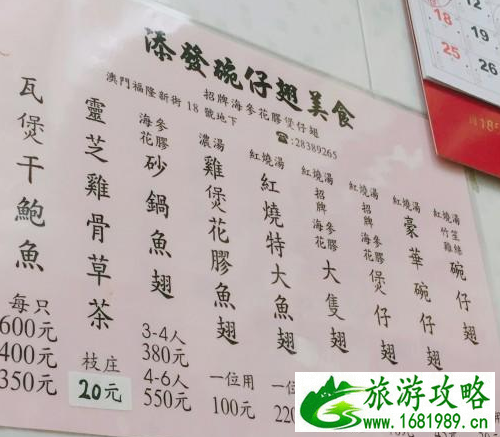 添發碗仔翅美食
招牌海參花膠煲仔翅
澳門福隆新街 18 號地下
☎:28389265
紅燒湯 竹笙雞絲 碗仔翅
紅燒湯 豪華碗仔翅
紅燒湯 招牌 海參花膠 煲仔翅
紅燒湯 招牌 海參花膠 大隻翅
紅燒特大魚翅
濃湯 雞煲花膠魚翅 一位用 100元
海參花膠 砂鍋魚翅 3-4人 380元 4-6人 550元
靈芝雞骨草茶 枝庄 20元
瓦煲干鮑魚 每只 600元 400元 350元
18
19
25
26
旅游攻略
www.1681989.cn